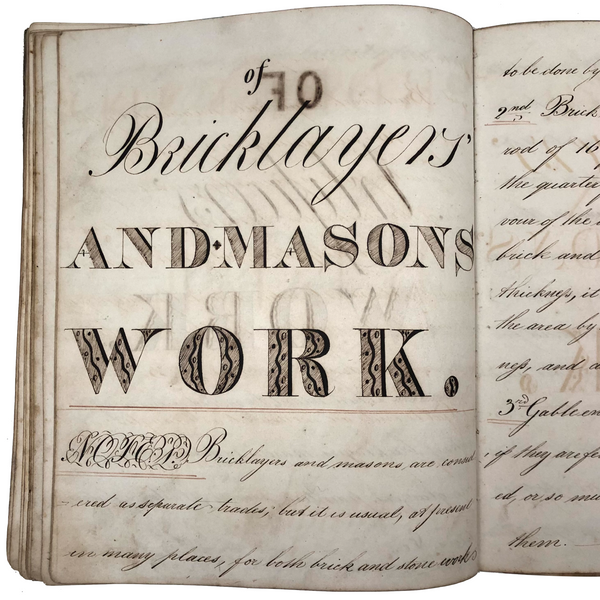 of
Bricklayers'
AND•MASONS
WORK.
NOTED, Bricklayers and masons, are consid
ered as separate trades; but it is usual, at present
in many places, for both brick and stone works
to be done by
2nd. Brick
rod of 16
the quarter
vour of the
brick and
thickness, it
the area by
ness, and a
3rd Gable en
if they are fe
ed, or so mu
them.